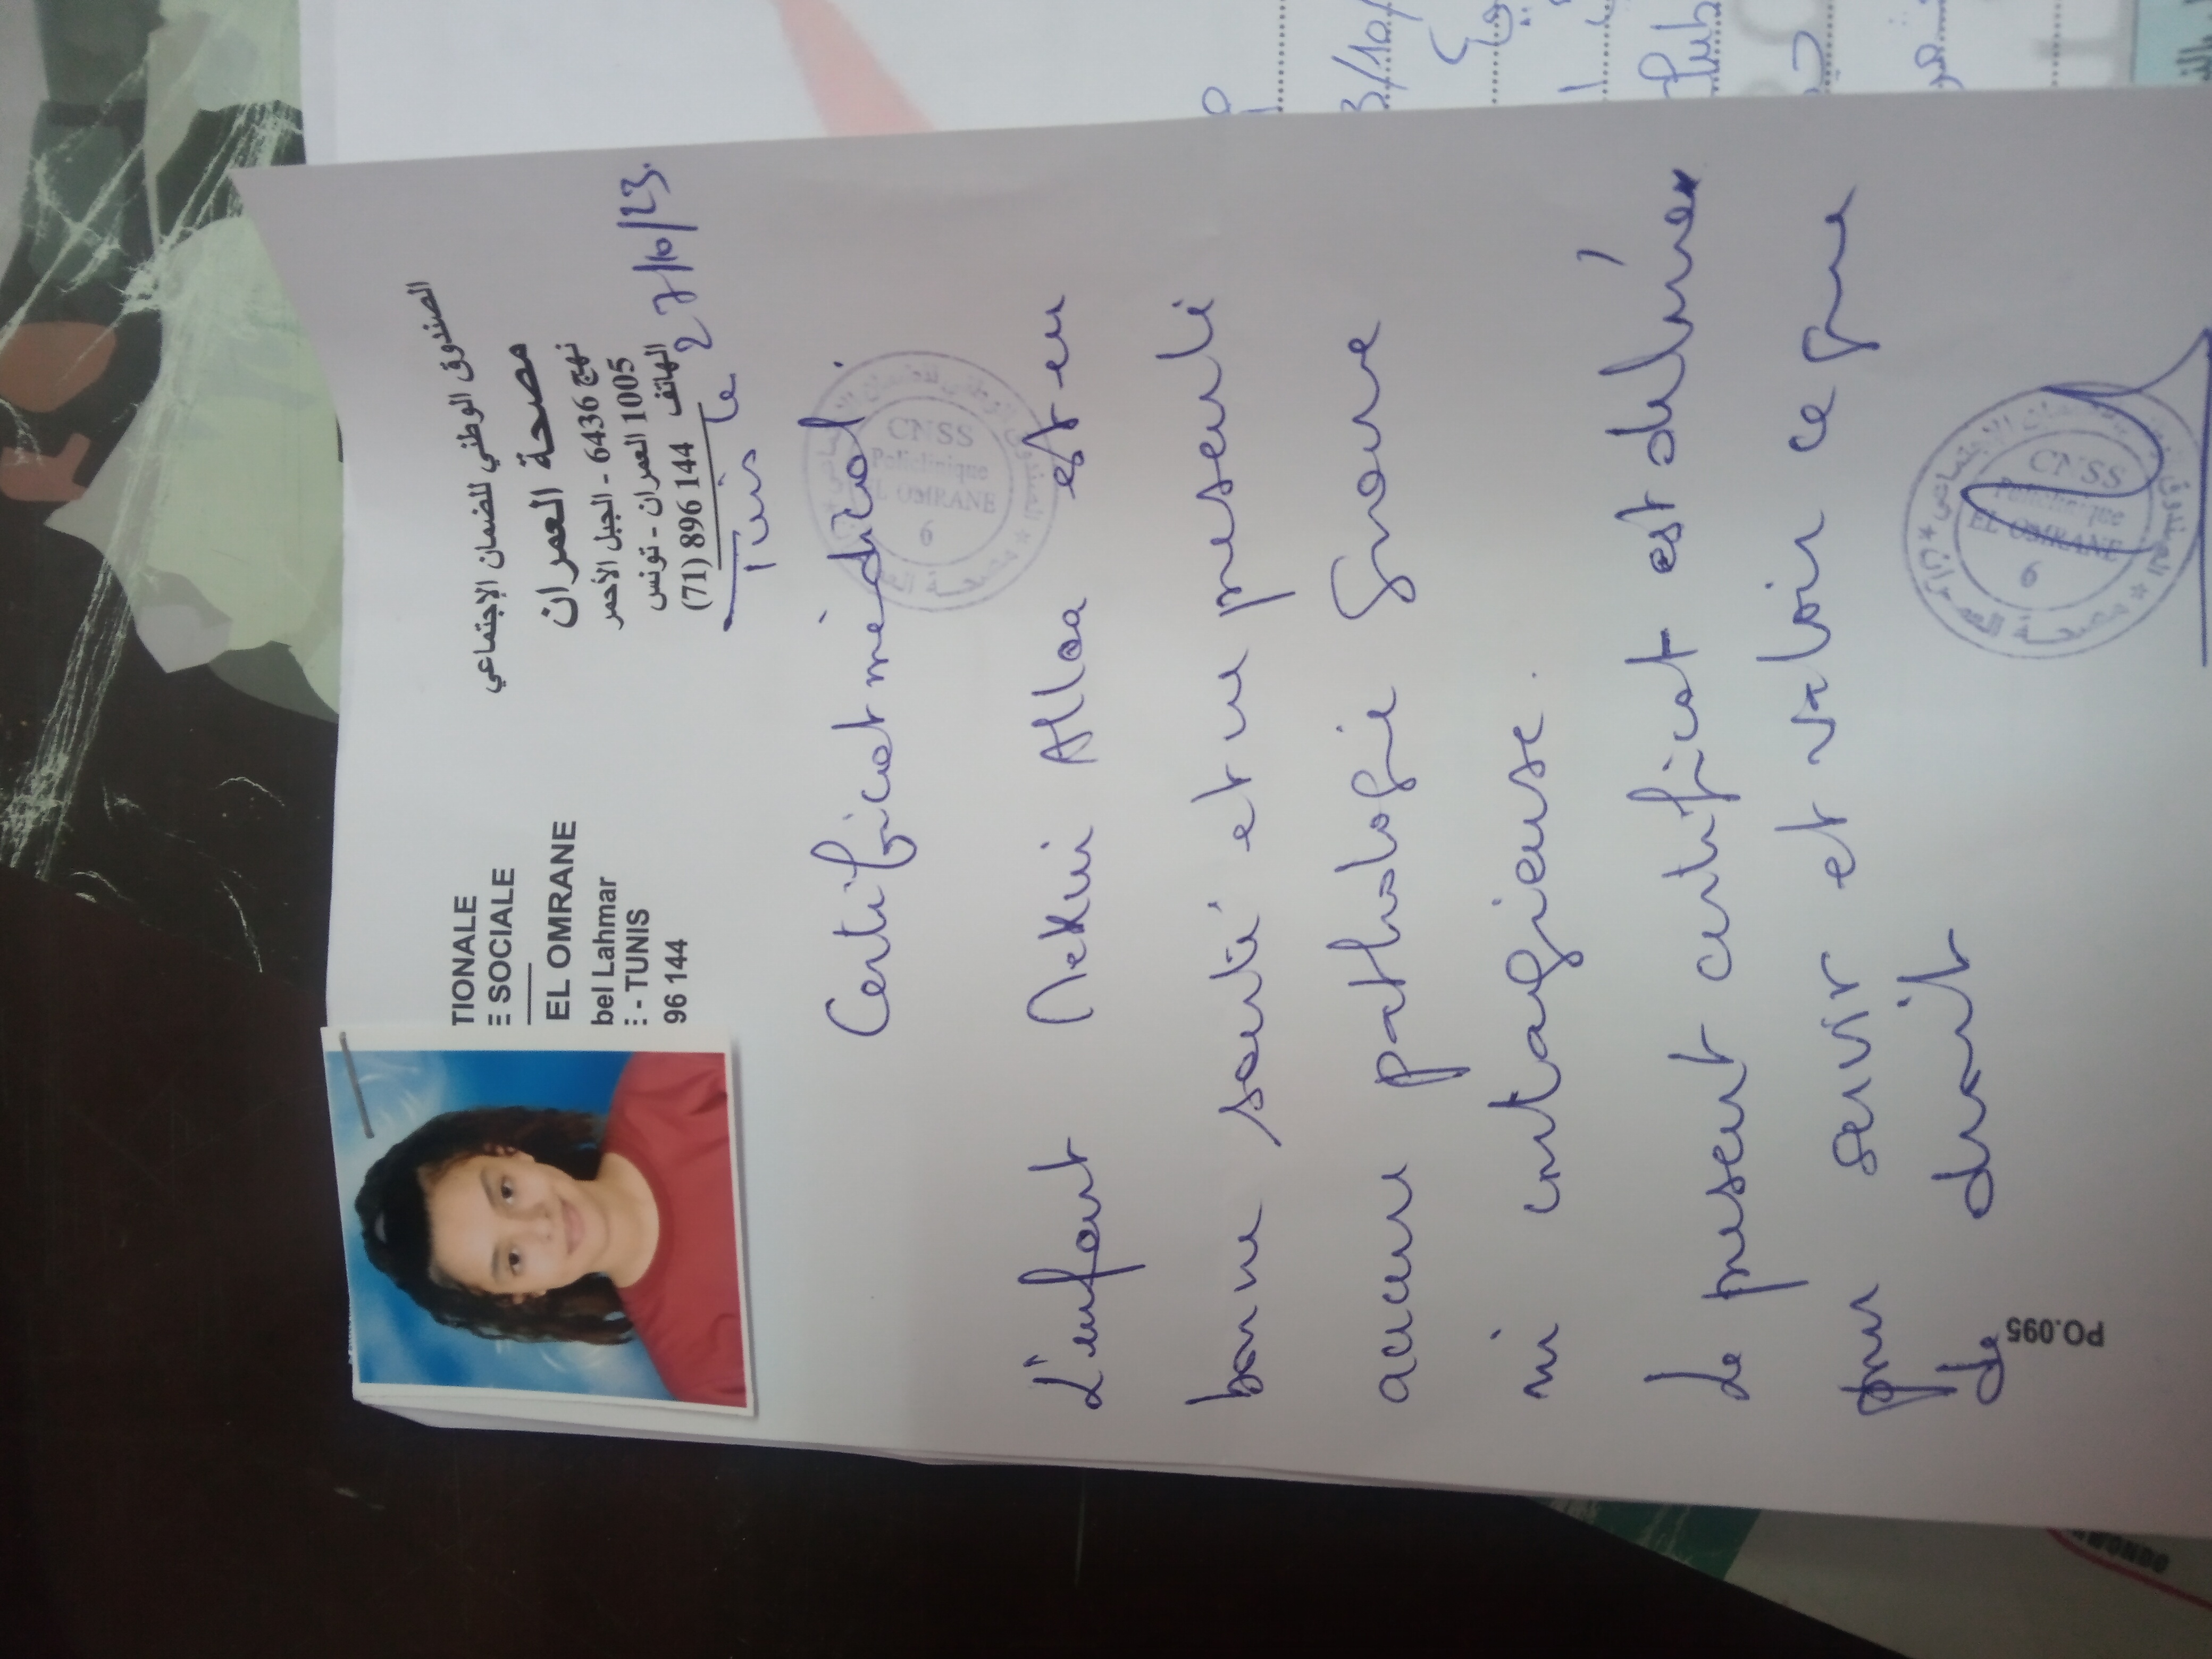 TIONALE
E SOCIALE
EL OMRANE
bel Lahmar
- TUNIS
96 144
الصندوق الوطني للضمان الإجتماعي
مصحة العمران
نهج 6436 - الجبل الأحمر
1005 العمران - تونس
الهاتف 896 144 (71)
Tunis le 27/10/23.
Certificat médical
CNSS
Policlinique
EL OMRANE
6
L'enfant Mekni Allaa est en
bonne santé et ne présente
aucune pathologie grave
ni contagieuse.
Le present certificat est délivrer
pour servir et valoir ce que
de droit
CNSS
Policlinique
EL OMRANE
6
الصندوق الوطني للضمان الإجتماعي
مصحة العمران
PO.095
3/10/